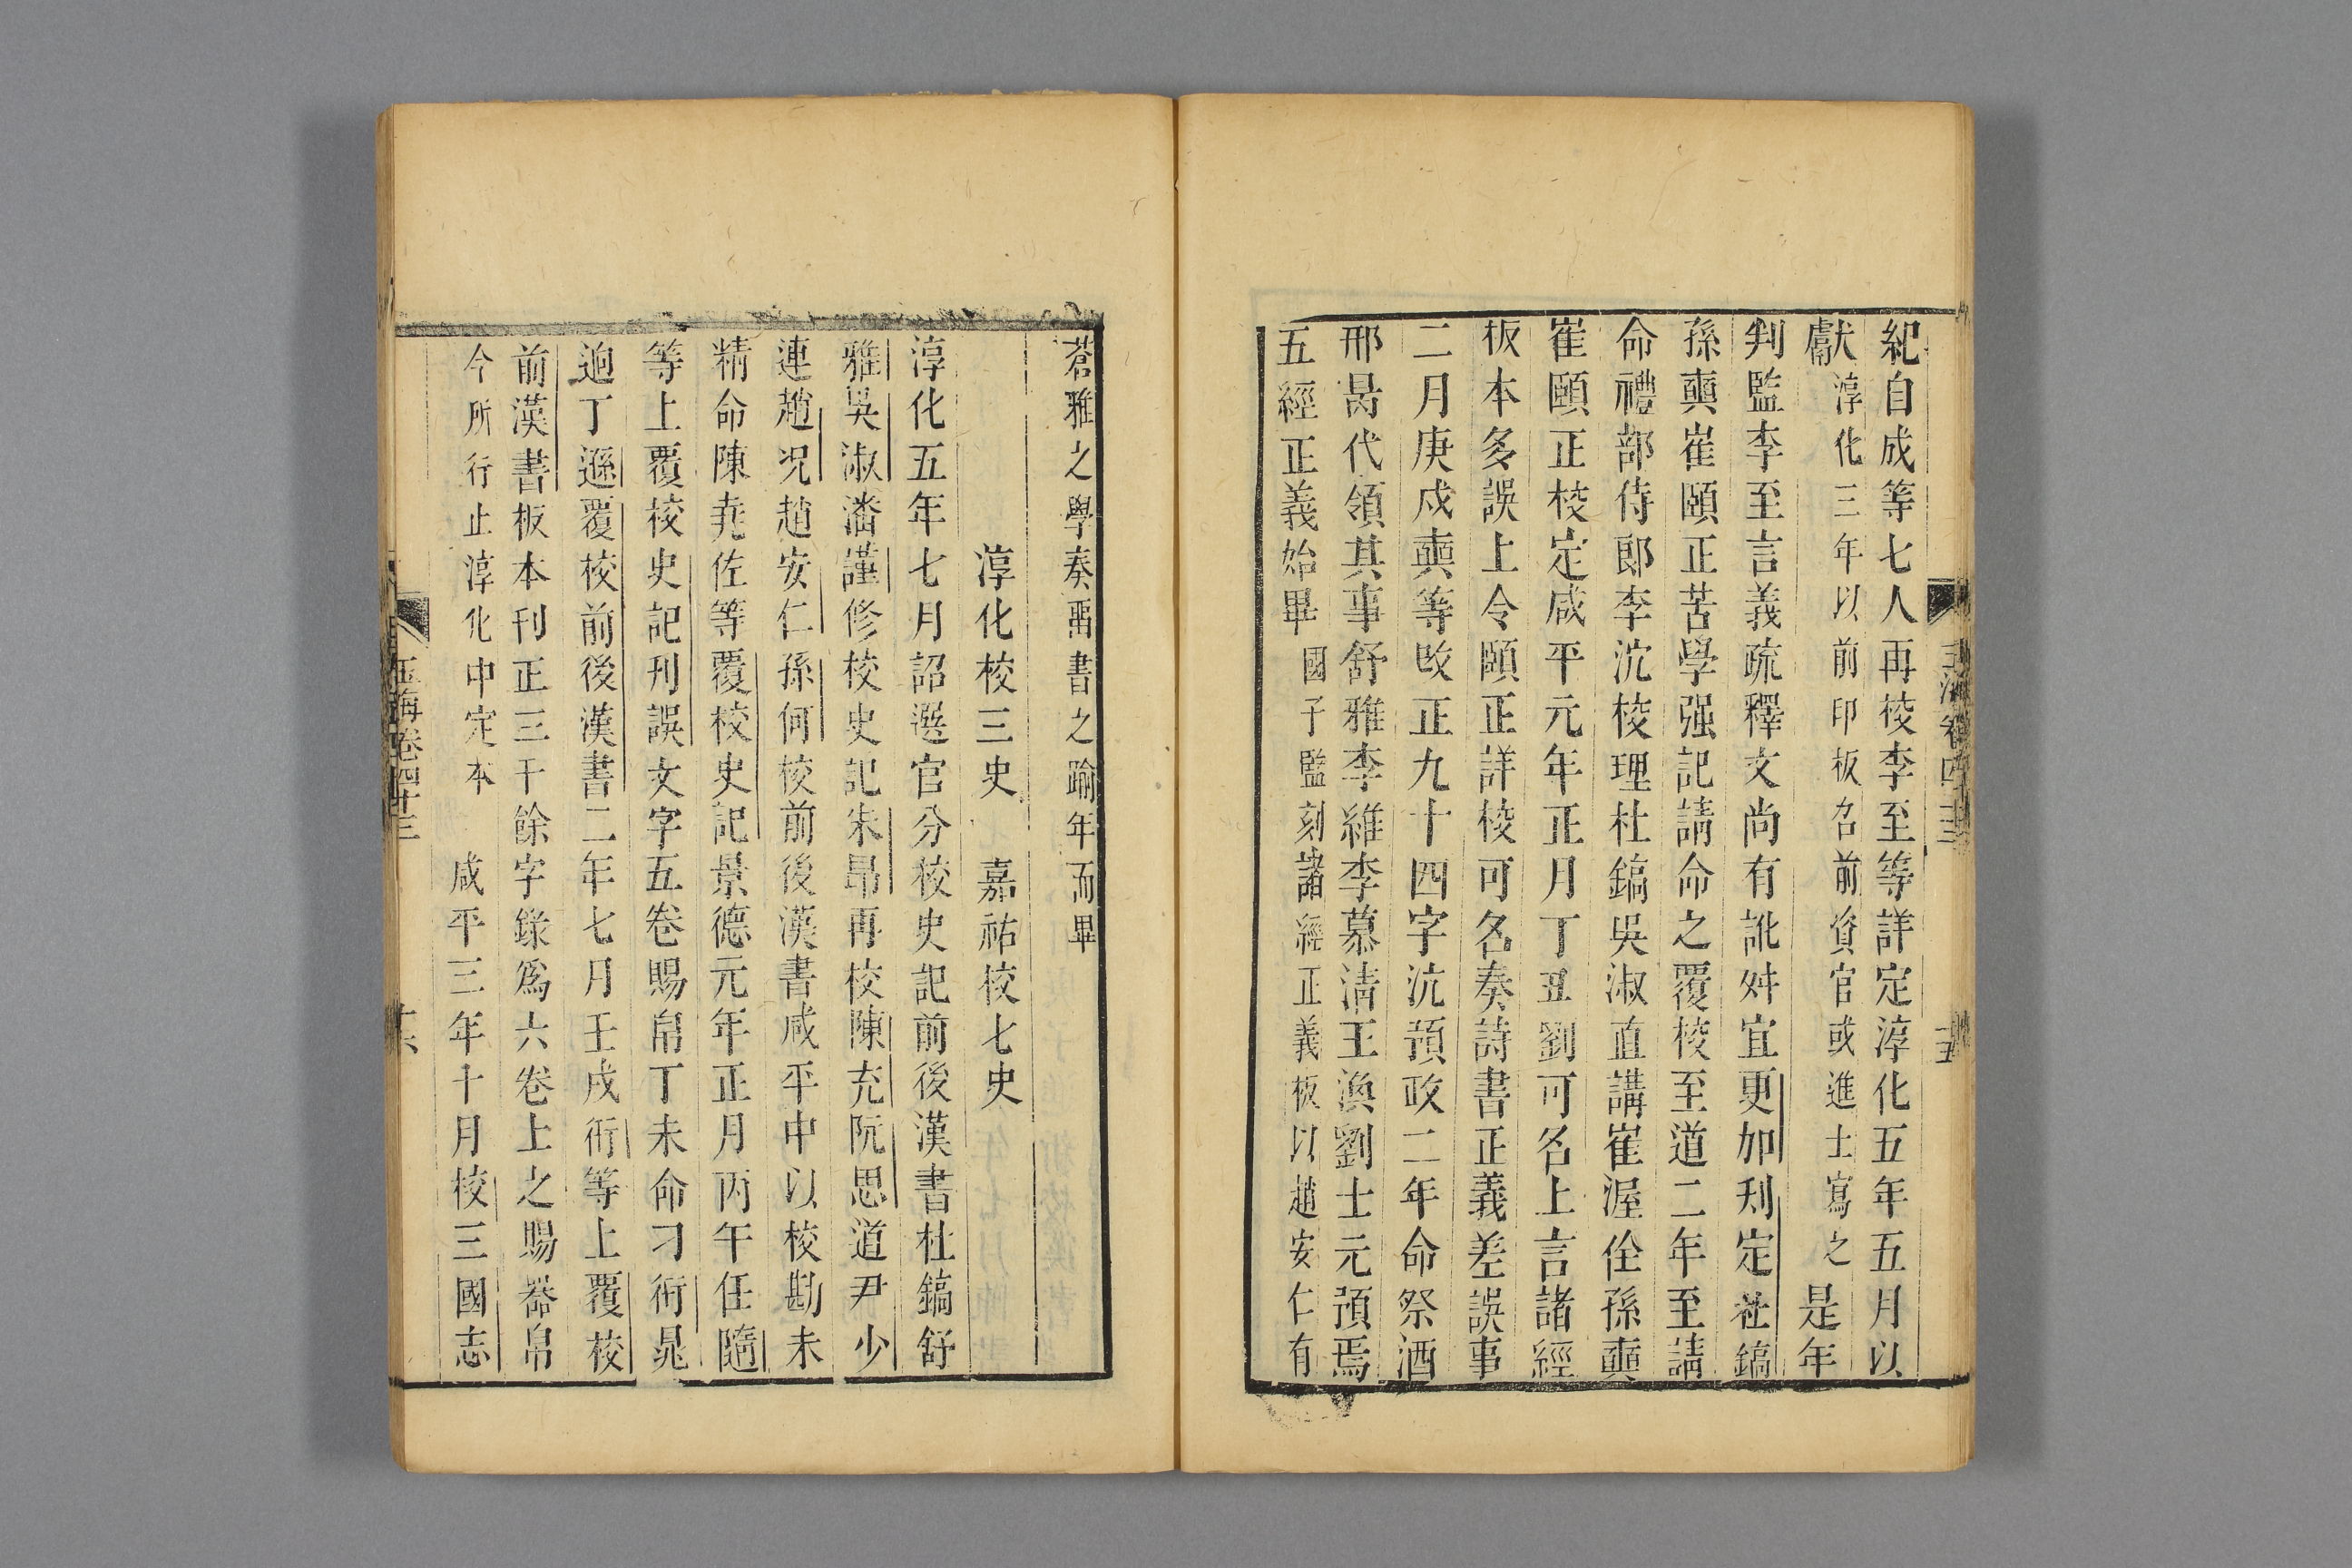 玉海卷四十三
十五
紀自成等七人再校李至等詳定淳化五年五月以
獻淳化三年以前印板召前資官或進士寫之是年
判監李至言義疏釋文尚有訛舛宜更加刋定杜鎬
孫奭崔頤正苦學强記請命之覆校至道二年至請
命禮部侍郎李沆校理杜鎬吳淑直講崔渥佺孫奭
崔頤正校定咸平元年正月丁丑劉可名上言諸經
板本多誤上令頤正詳校可名奏詩書正義差誤事
二月庚戍奭等改正九十四字沆預政二年命祭酒
邢昺代領其事舒雅李維李慕淸王渙劉士元預焉
五經正義始畢國子監刻諸經正義板以趙安仁有
蒼雅之學奏畱書之踰年而畢
淳化校三史 嘉祐校七史
淳化五年七月詔選官分校史記前後漢書杜鎬舒
雅吳淑潘謹修校史記朱昻再校陳充阮思道尹少
連趙况趙安仁孫何校前後漢書咸平中以校勘未
精命陳堯佐等覆校史記景德元年正月丙午任隨
等上覆校史記刋誤文字五卷賜帛丁未命刁衎晁
逈丁遜覆校前後漢書二年七月壬戌衎等上覆校
前漢書板本刊正三千餘字錄爲六卷上之賜器帛
今所行止淳化中定本 咸平三年十月校三國志
玉海卷四十三
十六